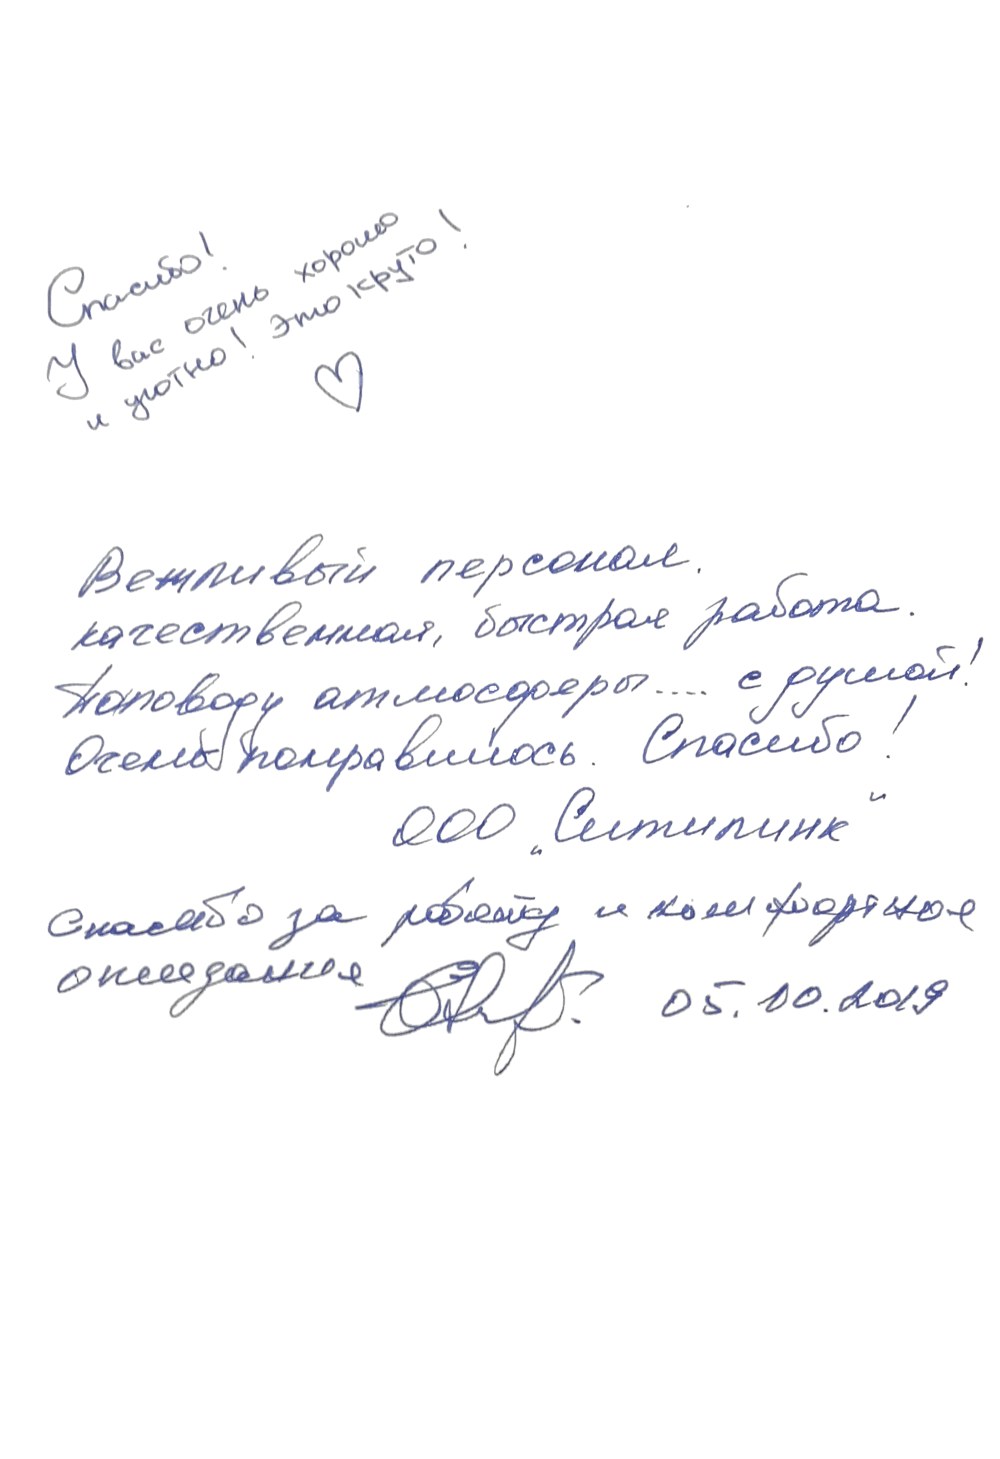 Спасибо!
У вас очень хорошо
и уютно! Это круто!
Вежливый персонал.
качественная, быстрая работа.
Поповоду атмосферы.... с душой!
Очень понравилось. Спасибо!
ООО „Ситилинк"
Спасибо за работу и комфортное
ожидание
05.10.2019